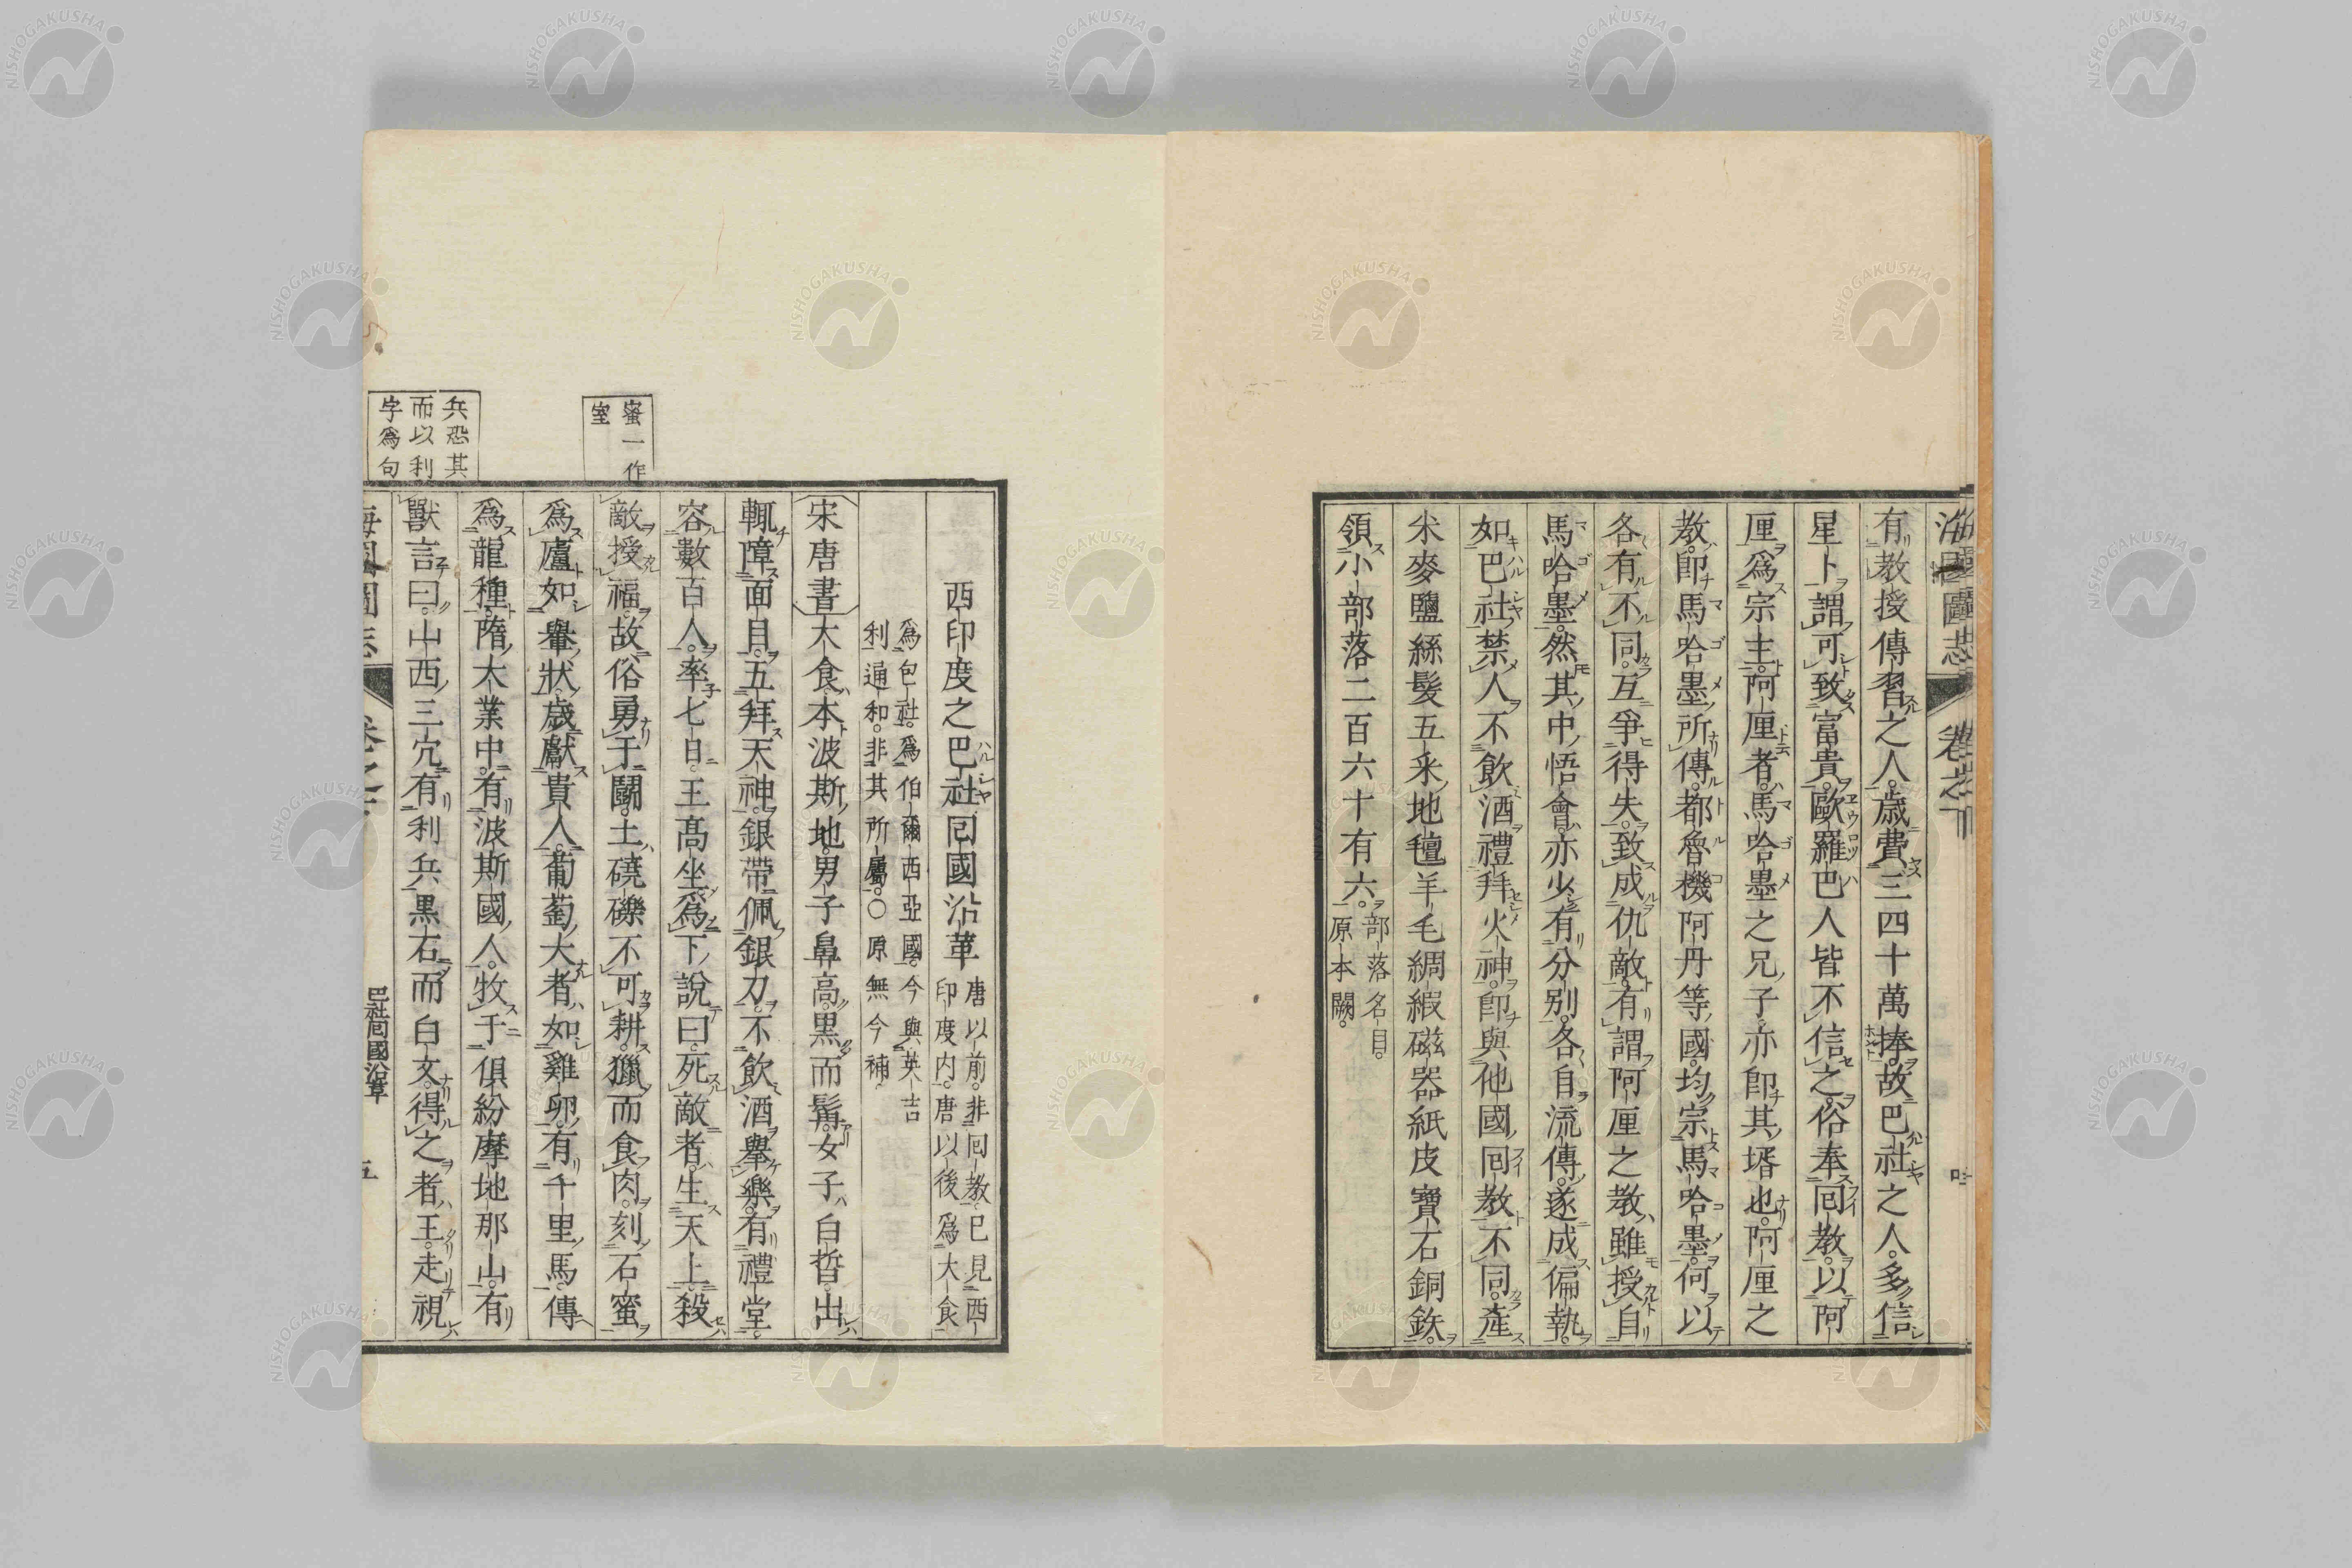 海國圖志
有教授傳習之人。歳費三四十萬捧。故巴社之人。多信
星卜。謂可致富貴。歐羅巴人皆不信之。俗奉囘教。以阿
厘爲宗主。阿厘者。馬哈墨之兄子。亦卽其壻也。阿厘之
教。卽馬哈墨所傳。都魯機阿丹等國。均宗馬哈墨。何以
各有不同。互爭得失。致成仇敵。有謂阿厘之教。雖授自
馬哈墨。然其中悟會。亦少有分别。各自流傳。遂成偏執。
如巴社禁人不飮酒禮拜火神。卽與他國囘教不同。產
米麥鹽絲髮五釆地氊羊毛綢緞磁器紙皮寶石銅鉄。
領小部落二百六十有六。部落名目。
原本闕。
西印度之巴社囘國沿革 唐以前。非囘教。已見西
印度内。唐以後爲大食
爲包社。爲伯爾西亞國。今與英吉
利通和。非其所屬。〇原無今補
宋唐書 大食。本波斯地。男子鼻高。黑而髯。女子白晳。出
輒障面。日五拜天神。銀帶佩銀刀。不飮酒舉樂。有禮堂。
容數百人。率七日。王高坐。爲下說曰。死敵者。生天上。殺
敵授福。故俗勇于鬭。土磽礫不可耕。獵而食肉。刻石蜜
爲廬。如轝狀。歳獻貴人。葡萄大者。如雞卵。有千里馬。傳
爲龍種。隋大業中。有波斯國人。牧于俱紛摩地那山。有
獸言曰。山西三穴。有利兵黑石而白文。得之者王。走視
蜜一作
室
兵恐其
而以利
字爲句
巴社囘國沿革
五